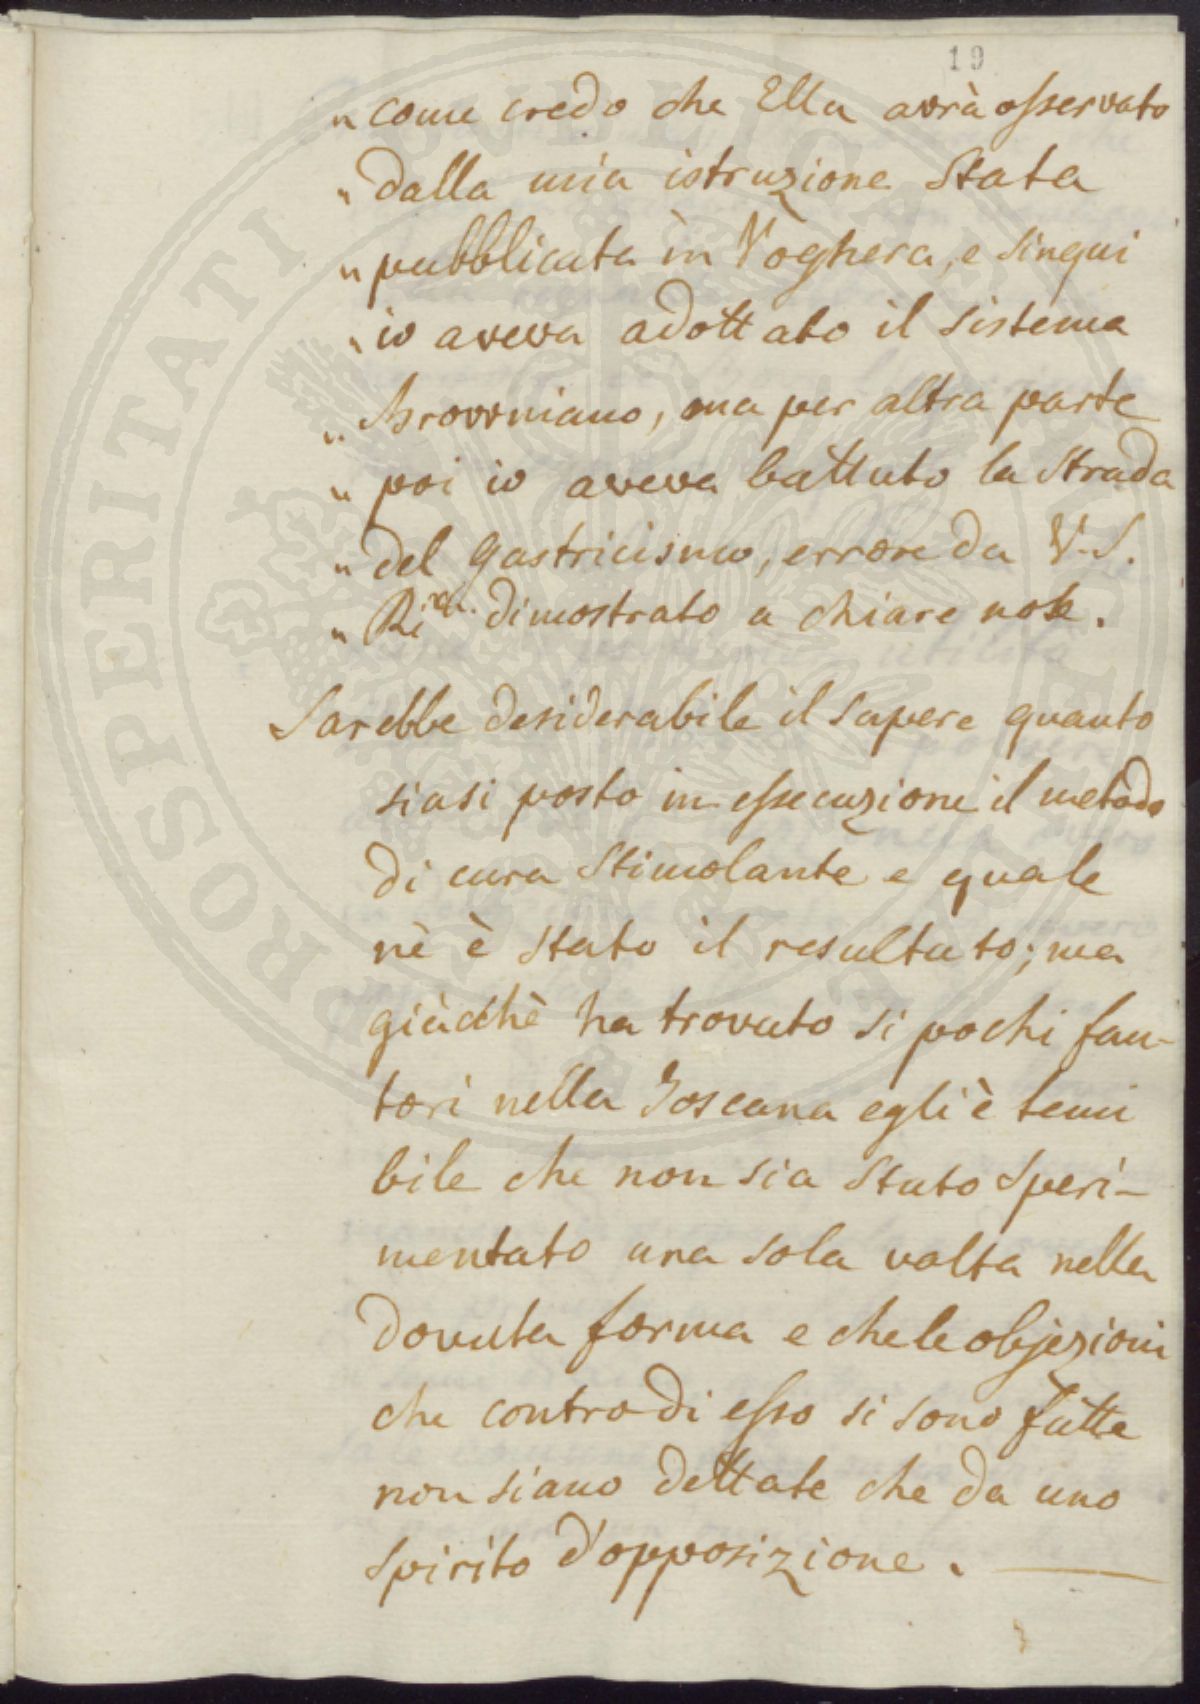 19
„ come credo che Ella avrà osservato
„ dalla mia istruzione stata
„ pubblicata in Voghera, e sinqui
„ io aveva adottato il sistema
„ Browniano, ma per altra parte
„ poi io aveva battuto la strada
„ del Gastricismo, errore da V.S.
„ dimostrato a chiare note.
Sarebbe desiderabile il sapere quanto
siasi posto in essecuzione il metodo
di cura stimolante e quale
nè è stato il resultato; ma
giàcchè ha trovato si pochi fau-
tori nella Toscana egli è temi
bile che non sia stato speri-
mentato una sola volta nella
dovuta forma e che le objezioni
che contro di esso si sono fatte
non siano dettate che da uno
spirito d'opposizione.
PROSPERITATI PUBLICAE AUGENDAE